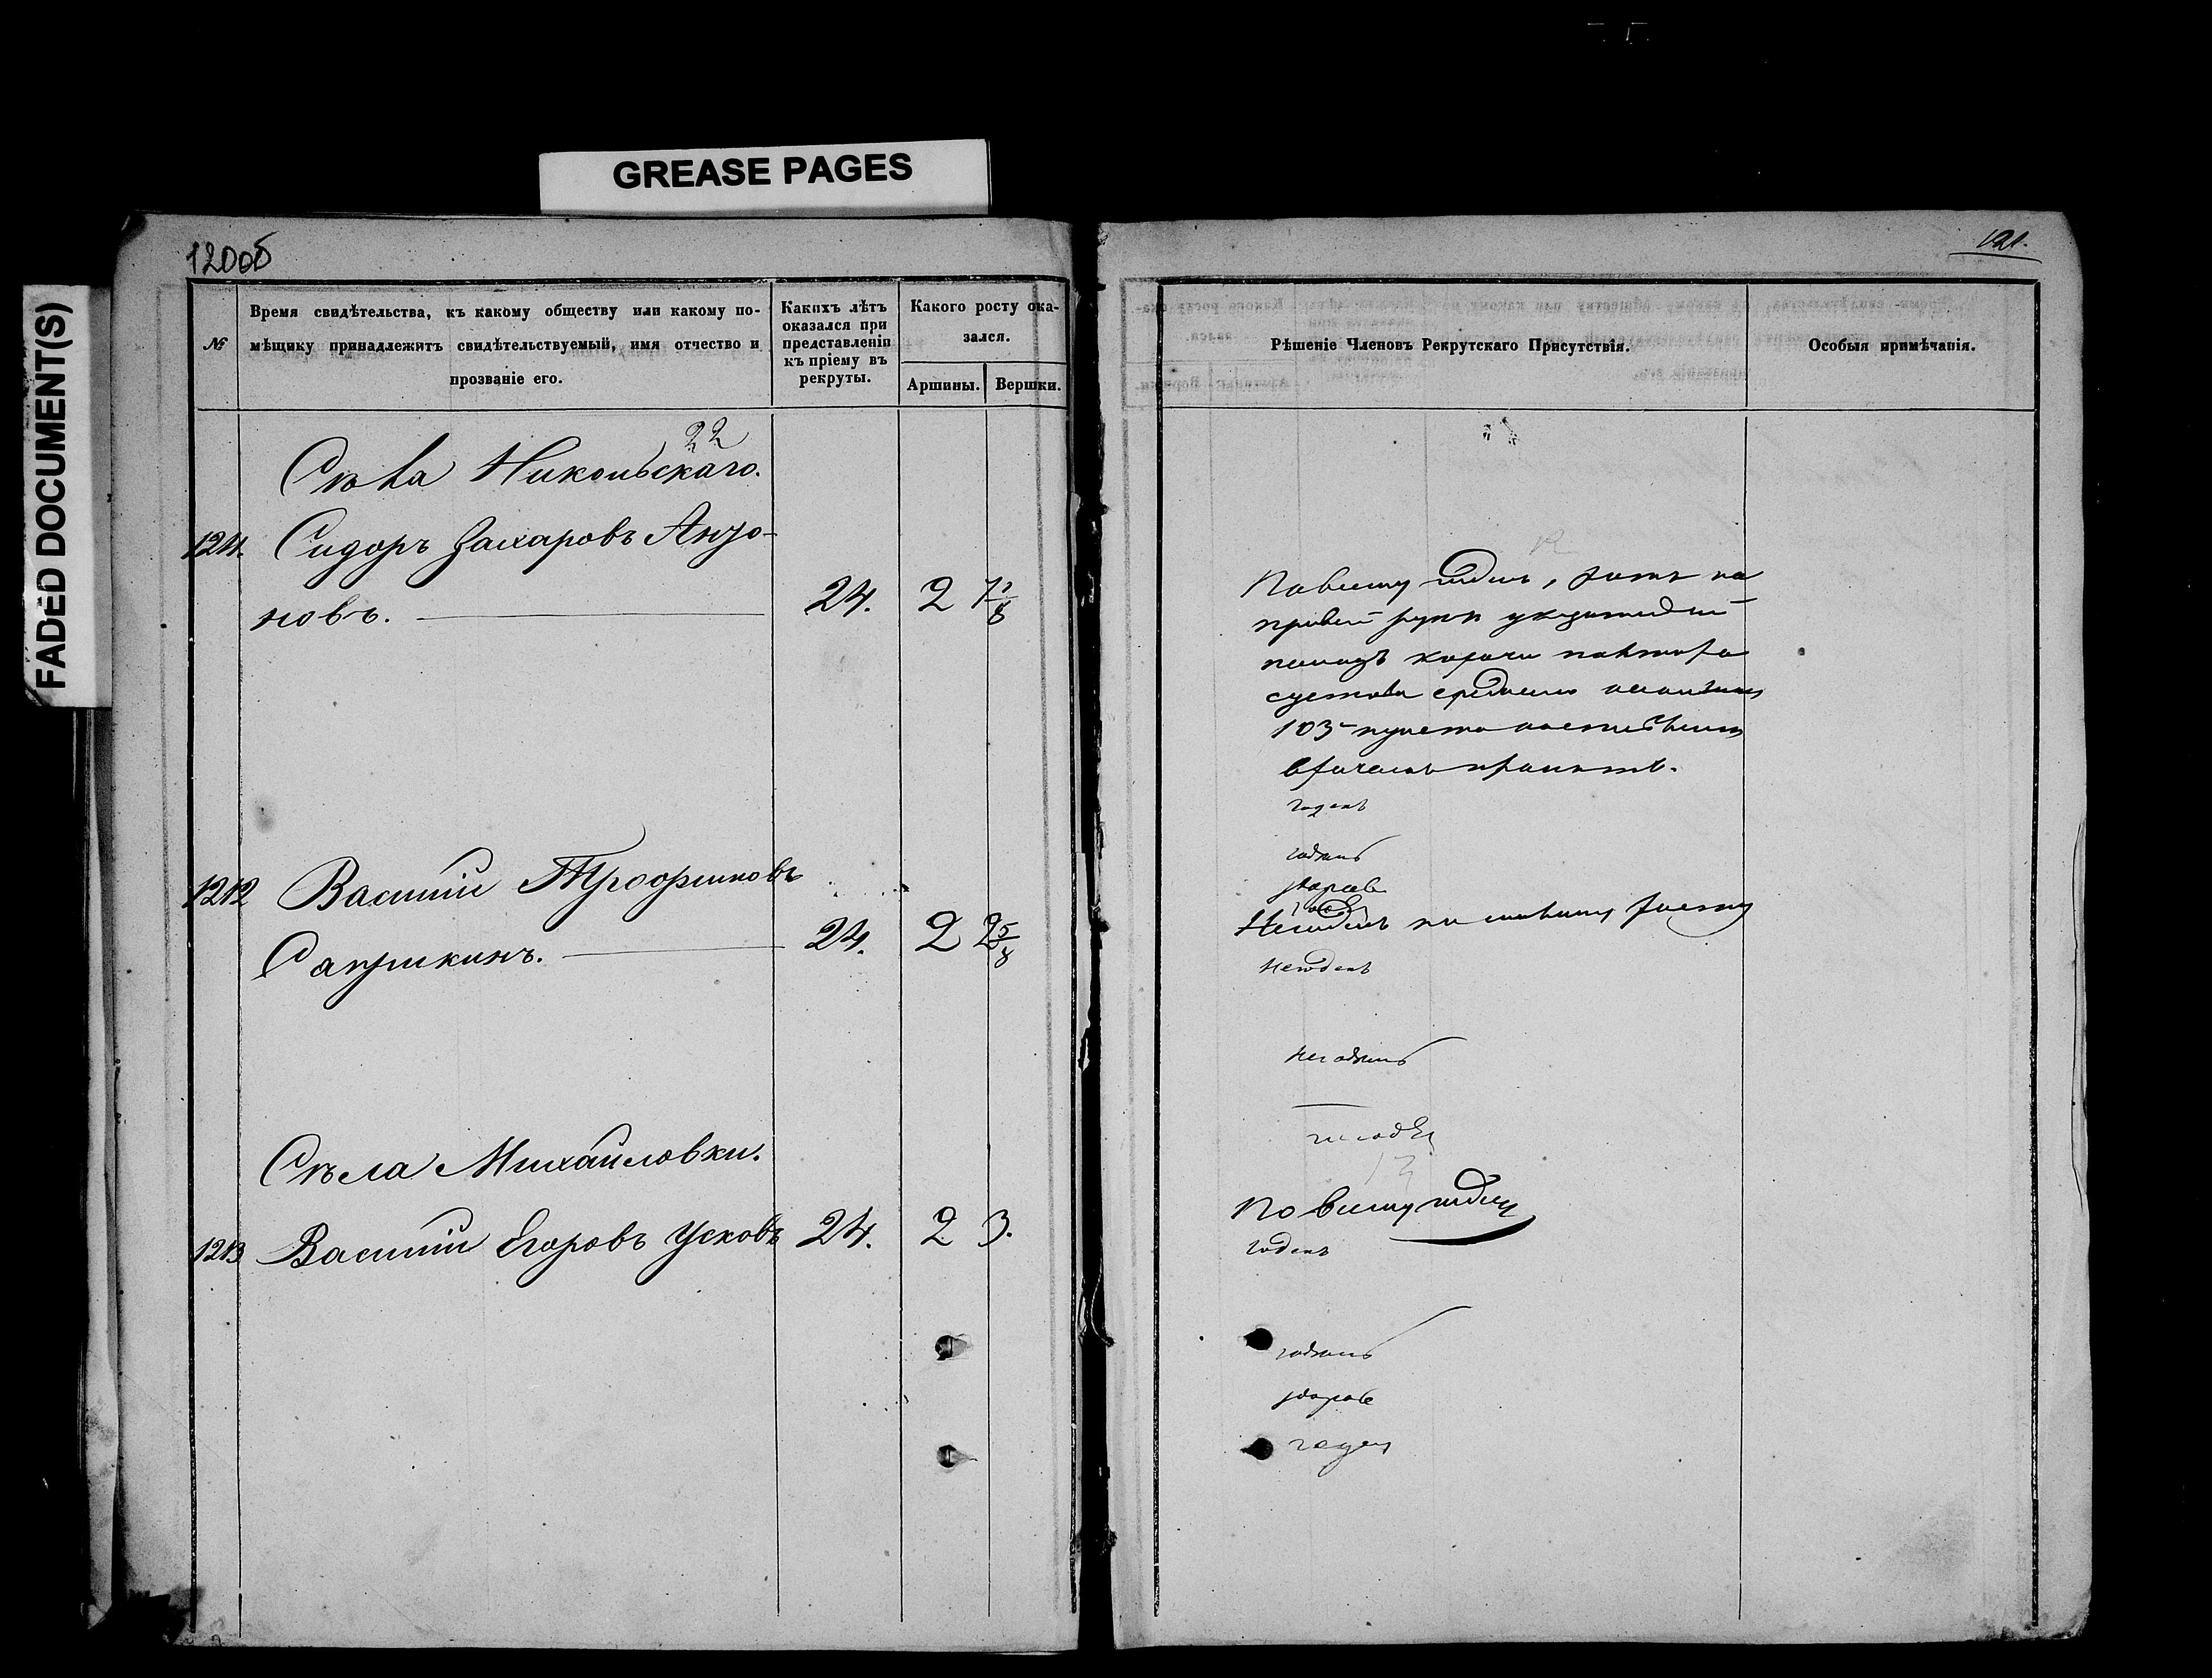 GREASE PAGES
FADED DOCUMENT(S)
120об
№
Время свидѣтельства, къ какому обществу или какому по-
мѣщику принадлежитъ свидѣтельствуемый, имя отчество и
прозваніе его.
Какихъ лѣтъ
оказался при
представленіи
къ пріему въ
рекруты.
Какого росту ока-
зался.
Аршины.
Вершки.
22
Сѣла Никольскаго.
Сидоръ Захаровъ Анто-
новъ.
24. 2
1212 Василій Трофимовъ
Сапрыкинъ. 24. 2 2 5/8
Сѣла Михайловки.
1213 Василій Егоровъ Усковъ 24. 2 3.
121.
Рѣшеніе Членовъ Рекрутскаго Присутствія.
Особыя примѣчанія.
По всему годенъ, на
правой руки
короче полтора
сустава средняго
103 пункта
принять.
годенъ
годенъ
здоровъ
годен
Негоденъ по малому росту
негоденъ
негоденъ
По всему годен
годенъ
годенъ
здоровъ
годен